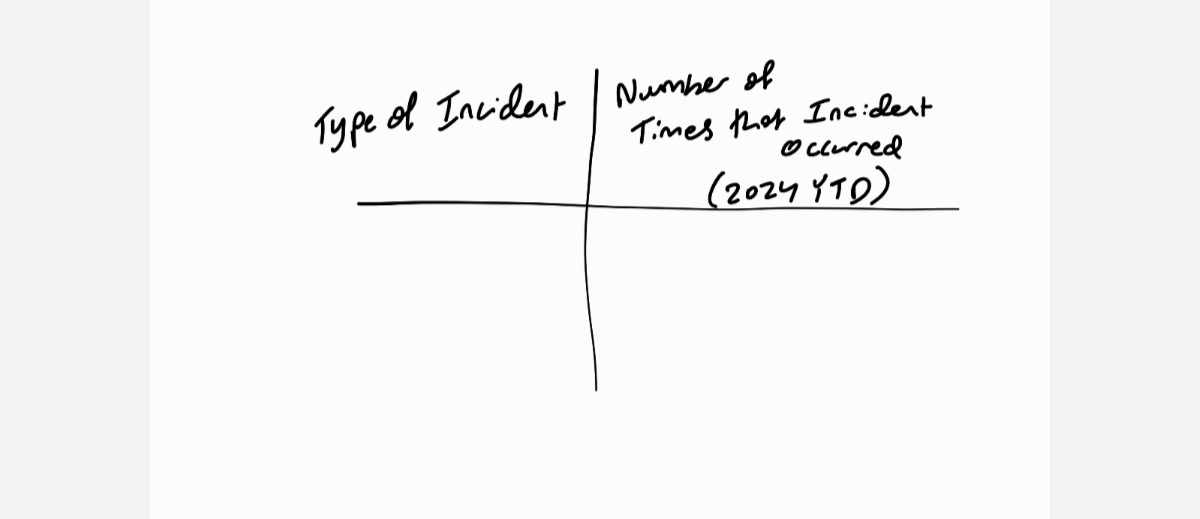 Type of Incident
Number of
Times that Incident
occurred
(2024 YTD)